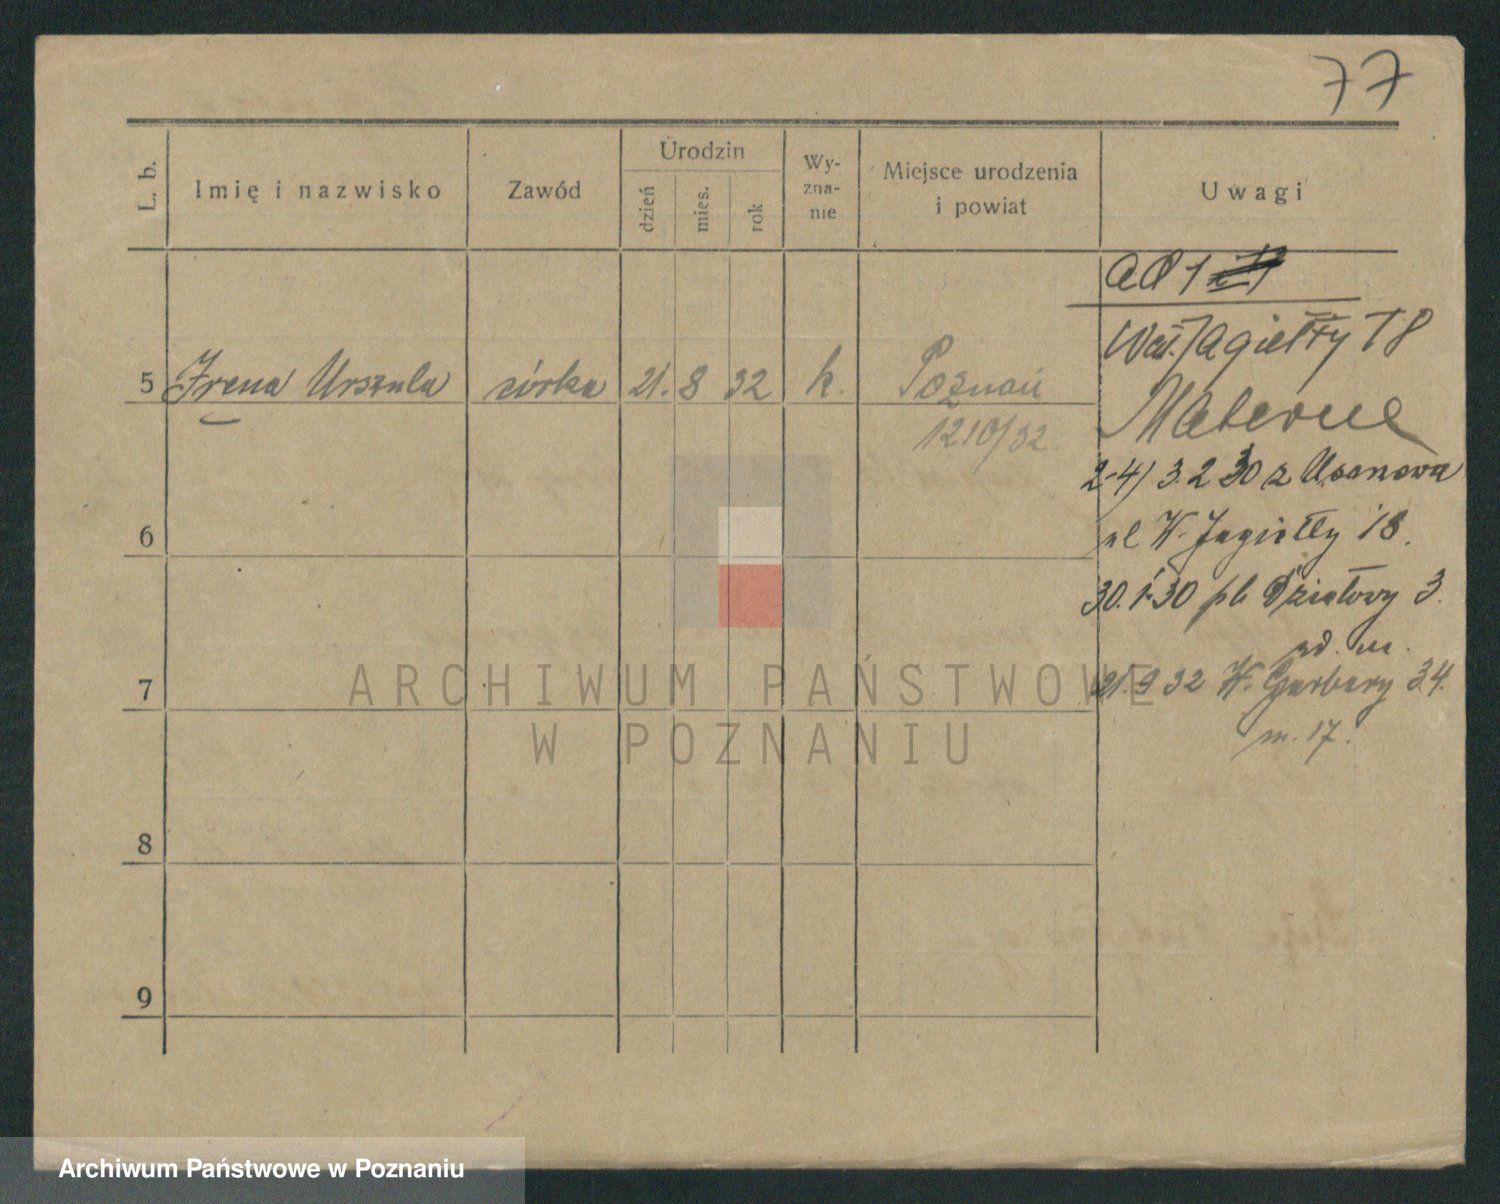 77
L. b.
Imię i nazwisko
Zawód
Urodzin
dzień
mies.
rok
Wy-
zna-
nie
Miejsce urodzenia
i powiat
Uwagi
ad 1
Wał. Jagiełły 18
5 Irena Urszula córka 21. 8 32 k. Poznań
1210/32.
2-4) 3.2 30 z
ul W. Jagiełły 18.
6
30.1.30 pl. Działowy 3.
21.9 32 W. Garbary 34.
m. 17.
7
8
9
ARCHIWUM PAŃSTWOWE
W POZNANIU
Archiwum Państwowe w Poznaniu